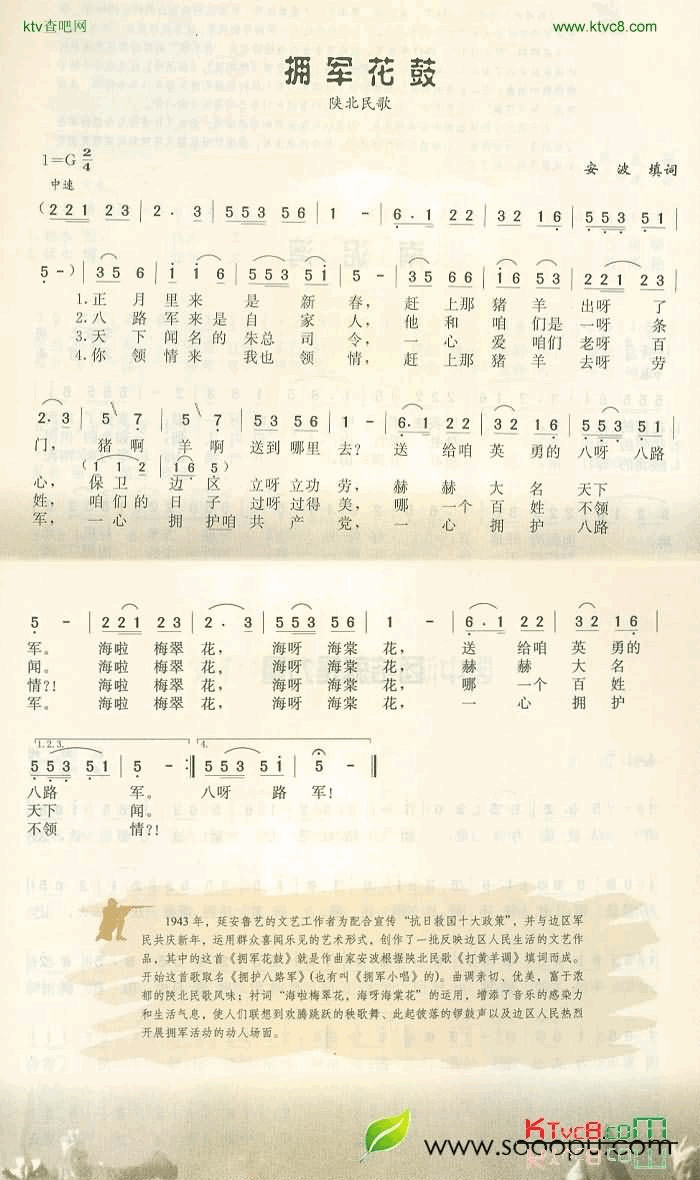 ktv查吧网
www.ktvc8.com
拥军花鼓
陕北民歌
1=G 2/4
中速
安 波 填词
( 2 2 1 2 3 | 2 · 3 | 5 5 3 5 6 | 1 - | 6 · 1 2 2 | 3 2 1 6 | 5 5 3 5 1 |
5 - ) | 3 5 6 | 1 1 6 | 5 5 3 5 1 | 5 - | 3 5 6 6 | 1 6 5 3 | 2 2 1 2 3 |
1.正 月 里来 是 新 春， 赶 上那 猪 羊 出呀 了
2.八 路 军来 是 自 家 人， 他 和 咱 们是 一呀 条
3.天 下 闻名 的 朱总 司 令， 一 心 爱 咱们 老呀 百
4.你 领 情来 我 也 领 情， 赶 上那 猪 羊 去呀 劳
2 · 3 | 5 7 | 5 7 | 5 3 5 6 | 1 - | 6 · 1 2 2 | 3 2 1 6 | 5 5 3 5 1 |
门， 猪 啊 羊 啊 送到 哪里 去？ 送 给咱 英 勇的 八呀 八路
( 1 1 2 | 1 6 5 )
心， 保 卫 边 区 立呀 立功 劳， 赫 赫 大 名 天下
姓， 咱 们的 日 子 过呀 过得 美， 哪 一个 百 姓 不领
军， 一 心 拥 护咱 共 产 党， 一 心 拥 护 八路
5 - | 2 2 1 2 3 | 2 · 3 | 5 5 3 5 6 | 1 - | 6 · 1 2 2 | 3 2 1 6 |
军。 海啦 梅翠 花， 海呀 海棠 花， 送 给咱 英 勇的
闻。 海啦 梅翠 花， 海呀 海棠 花， 赫 赫 大 名
情?! 海啦 梅翠 花， 海呀 海棠 花， 哪 一个 百 姓
军。 海啦 梅翠 花， 海呀 海棠 花， 一 心 拥 护
1.2.3. 4.
5 5 3 5 1 | 5 - :| 5 5 3 5 1 | 5 - ‖
八路 军。 八呀 路 军!
天下 闻。
不领 情?!
1943 年，延安鲁艺的文艺工作者为配合宣传“抗日救国十大政策”，并与边区军
民共庆新年，运用群众喜闻乐见的艺术形式，创作了一批反映边区人民生活的文艺作
品，其中的这首《拥军花鼓》就是作曲家安波根据陕北民歌《打黄羊调》填词而成。
开始这首歌取名《拥护八路军》(也有叫《拥军小唱》的)。曲调亲切、优美，富于浓
郁的陕北民歌风味；衬词“海啦梅翠花，海呀海棠花”的运用，增添了音乐的感染力
和生活气息，使人们联想到欢腾跳跃的秧歌舞、此起彼落的锣鼓声以及边区人民热烈
开展拥军活动的动人场面。
KTvc8.com
www.sooopu.com